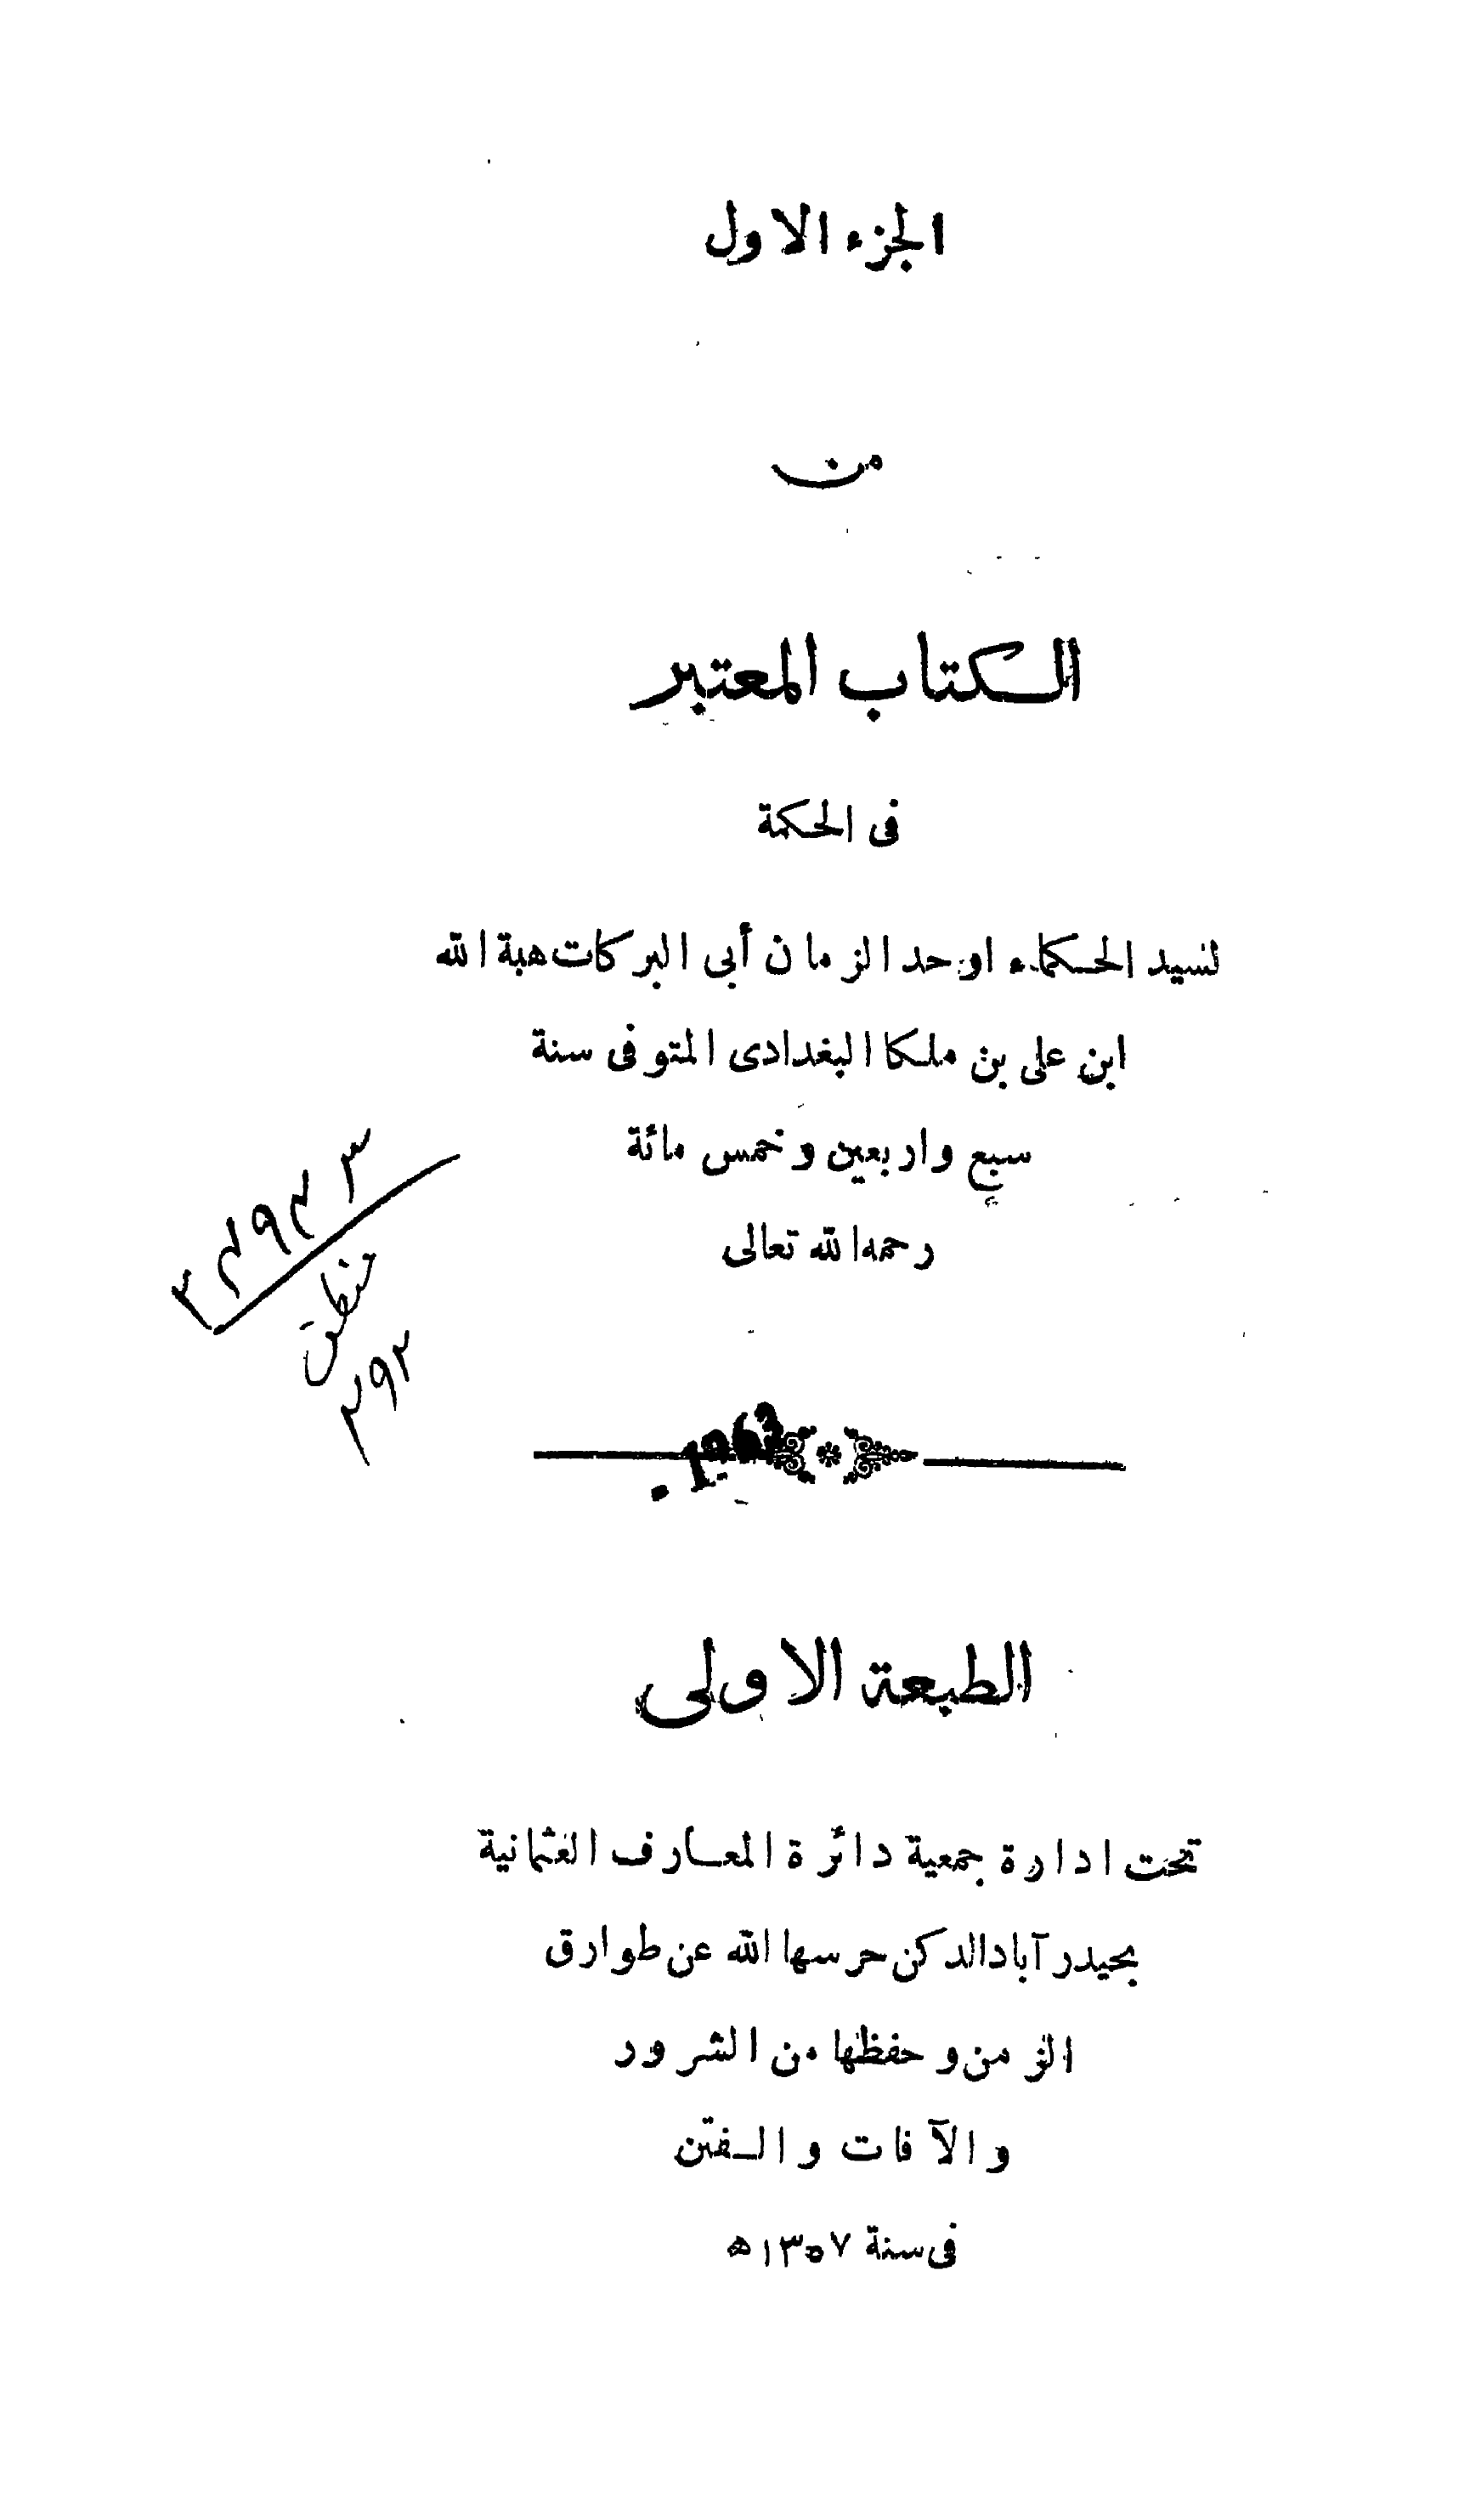 الجزء الاول
من
الكتاب المعتبر
فى الحكمة
لسيد الحكماء اوحد الزمان أبى البركات هبة الله
ابن على بن ملكا البغدادى المتوفى سنة
سبع واربعين وخمس مائة
رحمه الله تعالى
الطبعة الاولى
تحت ادارة جمعية دائرة المعارف العثمانية
بحيدر آباد الدكن حرسها الله عن طوارق
الزمن وحفظها من الشرور
والآفات والفتن
فى سنة ١٣٥٧ھ